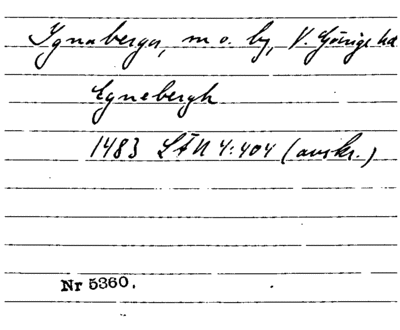 Ignaberga, m o. by, V. Göinge hd
Egnebergh
1483 LÄU 4:404 (avskr.)
Nr 5360.